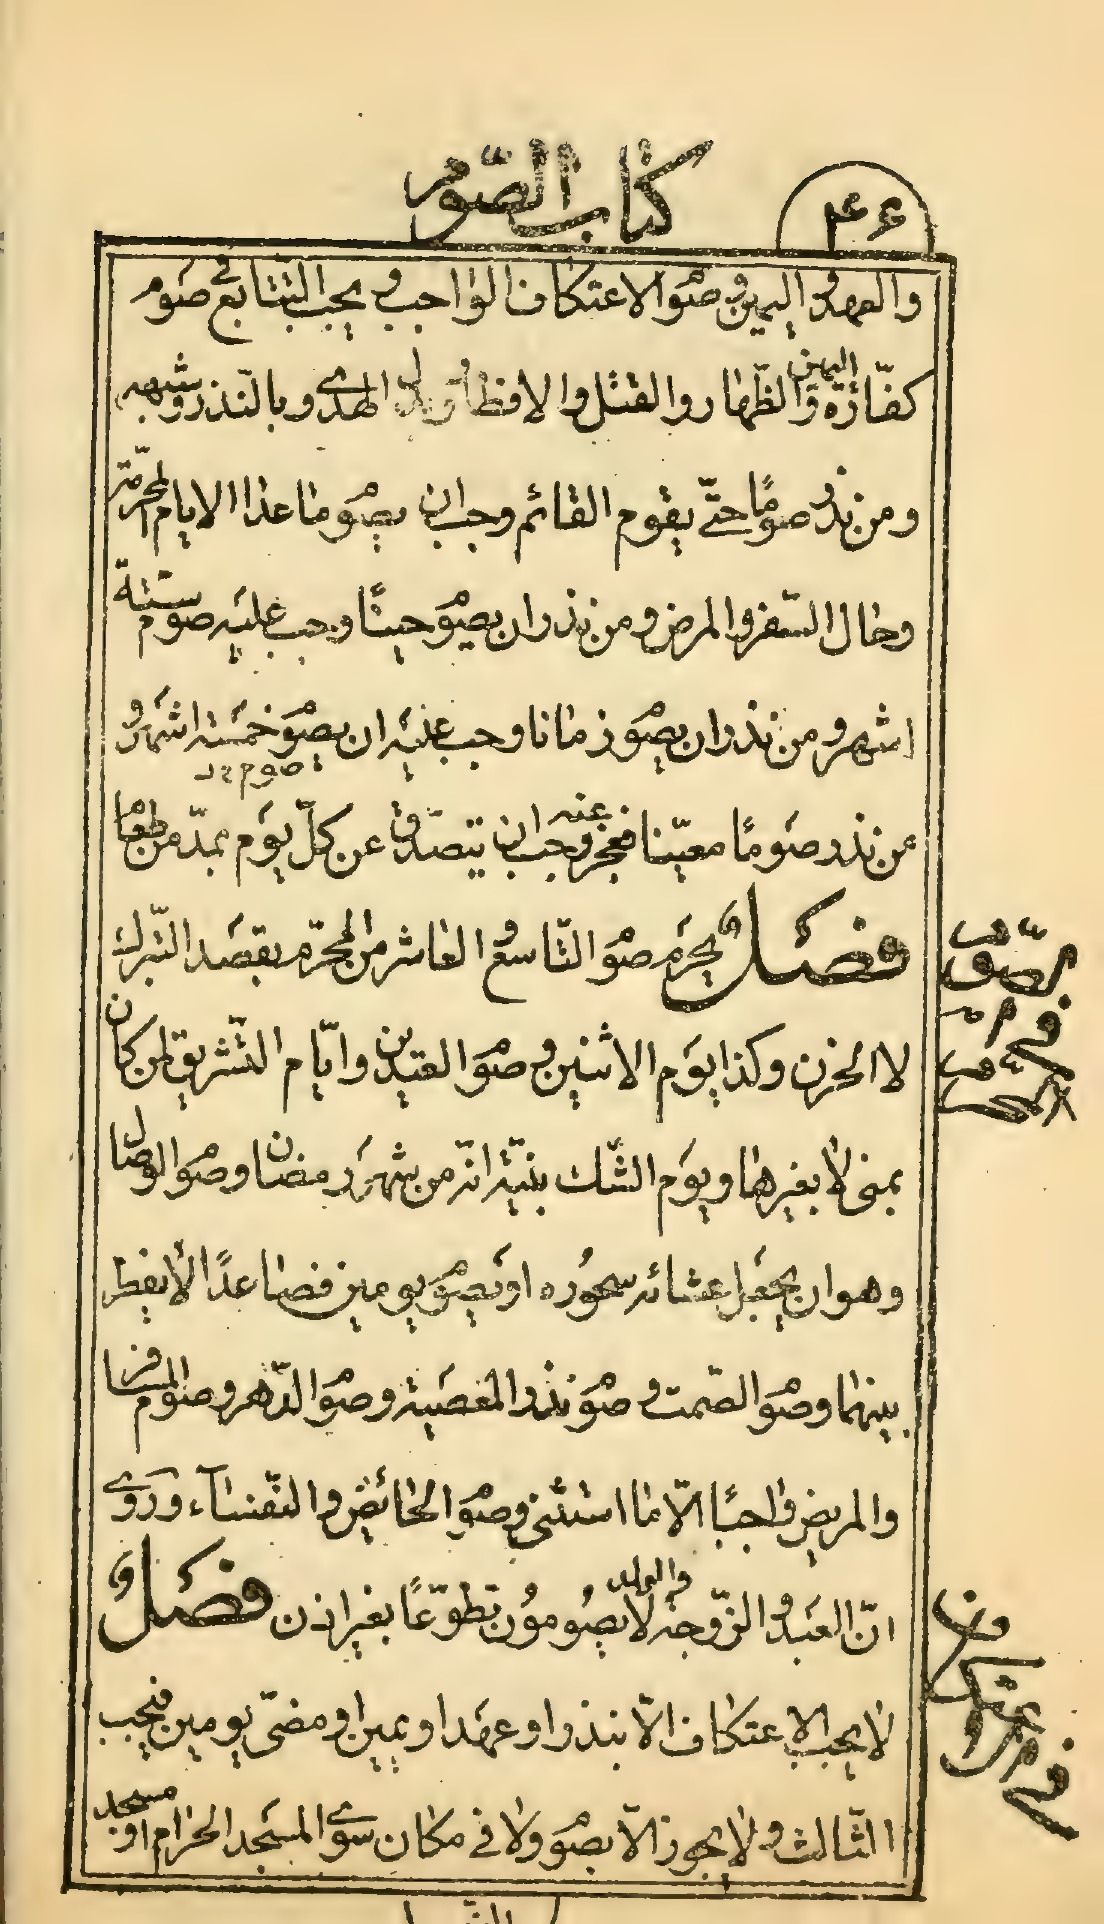 كتاب الصّوم
۴۶
والعهد واليمين وصوم الاعتكاف الواجب ويجب التتابع في صوم
كفّارة اليمين والظّهار والقتل والافطار وبدل الهدى وبالنّذر وشبهه
ومن نذر صومًا حتّى يقوم القائم وجب ان يصوم ما عدا الايام المحرّمة
وحال السّفر والمرض ومن نذر ان يصوم حينًا وجب عليه صوم ستّة
اشهر ومن نذر ان يصوم زمانا وجب عليه ان يصوم خمسة اشهر و
من نذر صومًا معيّنا فعجز عنه وجب ان يتصدّق عن كلّ يوم بمدّ من طعام
فصل يحرم صوم التّاسع والعاشر من المحرّم بقصد التّبرك
لا الحزن وكذا يوم الاثنين وصوم العيدين وايّام التّشريق لمن كان
بمنى لا بغيرها ويوم الشّك بنيّة انّه من شهر رمضان وصوم الوصال
وهو ان يجعل عشائه سحوره او يصوم يومين فصاعدًا لا يفطر
بينهما وصوم الصّمت وصوم نذر المعصية وصوم الدّهر وصوم المسافر
والمريض واجبًا الّا ما استثنى وصوم الحائض والنّفساء وروى
انّ العبد والزّوجة والولد لا يصومون تطوّعًا بغير اذن فصل
لا يجب الاعتكاف الّا بنذر او عهد او يمين او مضىّ يومين فيجب
الثّالث ولا يجوز الّا بصوم ولا في مكان سوى المسجد الحرام او مسجد
في الاعتكاف